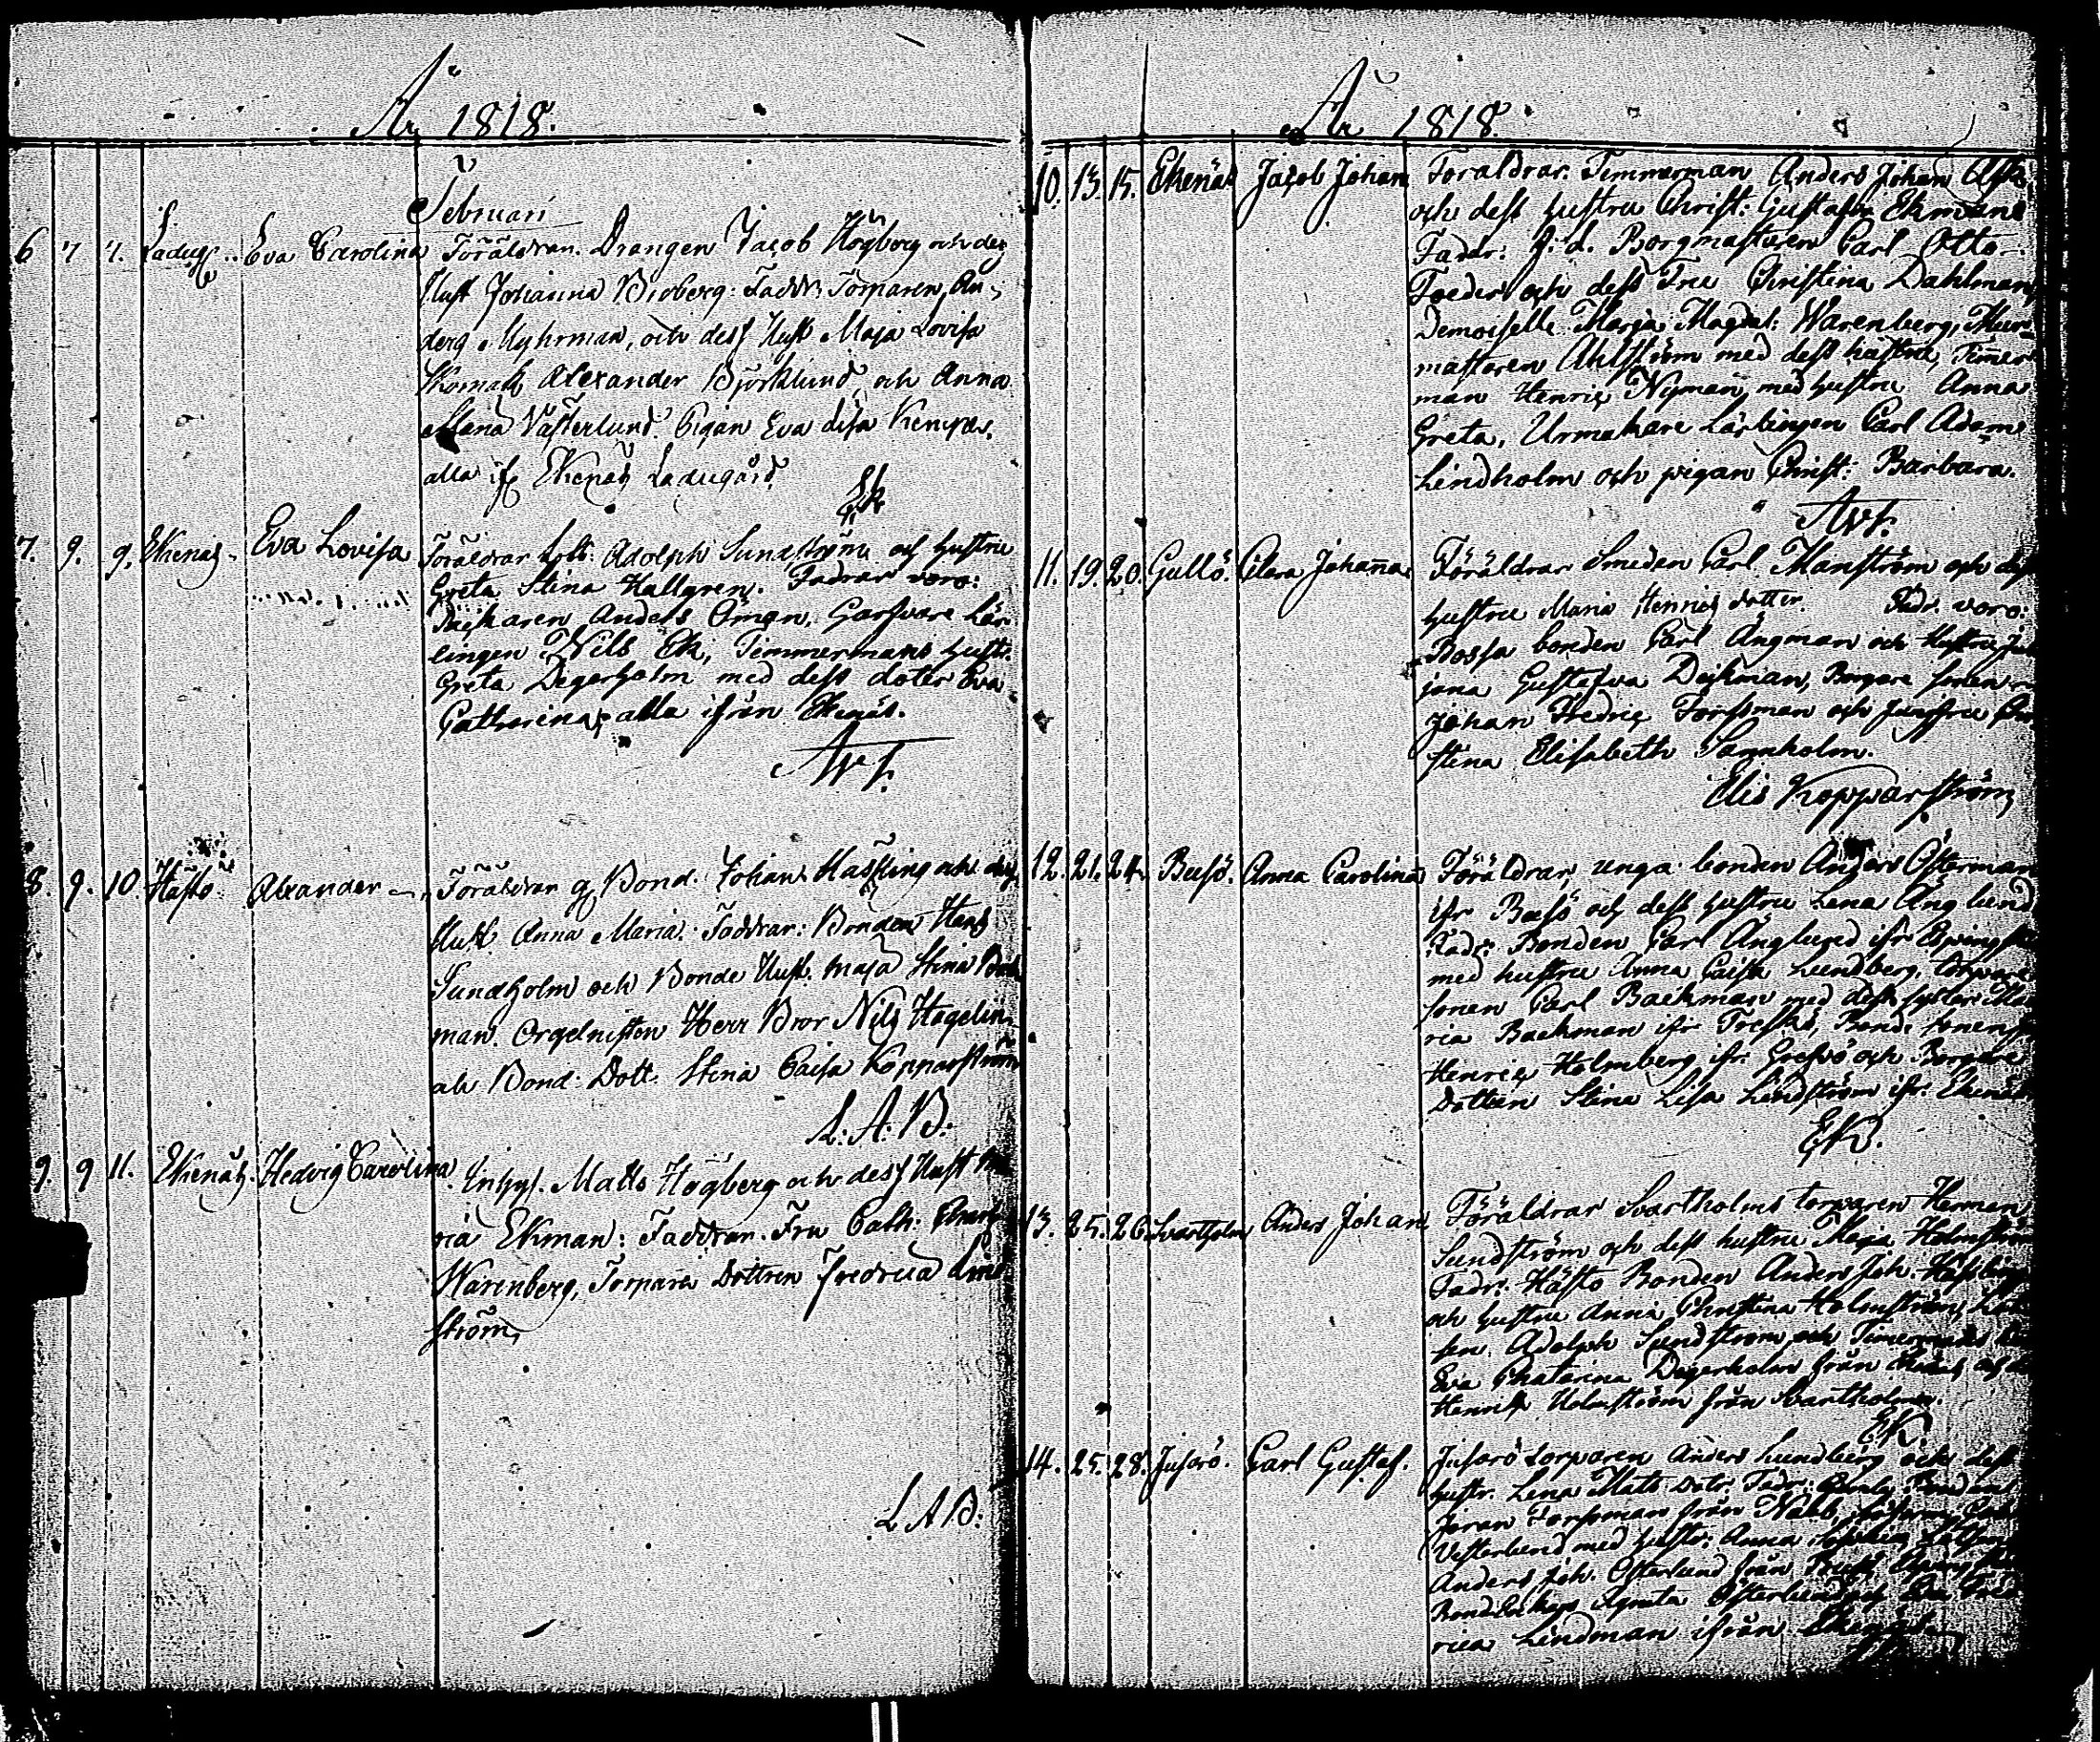 År 1818.
Februari
6 7 7. Ladug. Eva Carolina Föräldrar. Drängen Jacob Högberg och des
Hust Johanna Broberg: Faddr: Torparen An-
ders Myhrman, och dess Hust Maja Lovisa
Skomak Alexander Björklund, och Anna
Maria Västerlund. Pigan Eva Lisa
alla ifr Ekenäs Ladugård.
Ek
7. 9. 9. Ekenäs. Eva Lovisa Föräldrar Adolph Sundström och hustru
Greta Stina Hallgren. Fadrar voro:
Anders Öman, Garfvare Lär
lingen Nils Ek, Timmermans hust:
Greta Degerholm med dess doter Eva
Catharina, alla ifrån Ekenäs.
8. 9. 10. Hästö. Alexander Föräldrar Bond. Johan Hästling och des
Hust Anna Maria. Faddrar: Bonden Hans
Sundholm och Bonde Hust. Maja Stina
man. Orgelnisten Herr Bror Nils Hagelin
Bond. Dott. Stina Caisa Kopparström
L. A. B.
9. 9 11. Ekenäs. Hedvig Carolina. Inhys. Matts Högberg och dess Hust Ma
ria Ekman: Faddrar. Fru Cath:
Warenberg, Torpare Dottren Fredrica Lind
ström,
L A B.
År 1818.
10. 13. 15. Ekenäs Jacob Johan Föraldrar. Timmerman Anders Johan
och dess hustru Christ: Gustafva Ekman
Fadr: Borgmästaren Carl Otto
och dess Fru Christina Dahlman,
Demoiselle Marja Magdal: Warenberg, Mur-
mästaren Ahlström med dess hustru, Timer
man Henric Nyman, med hustru Anna
Greta, Urmakare Lärlingen Carl Adam
Lindholm och pigan Christ: Barbara.
11. 19. 20. Gullö. Clara Johanna. Föräldrar Smeden Carl Manström och dess
hustru Maria Henrics dotter. Fadr. voro:
bonden Carl Ängman och Hustru
Gustafva Dickman, Borgare sonen
Johan Fredric Forssman och Jungfru Chri
stina Elisabeth Sannholm.
Elis Kopparström
12. 21. 24. Busö. Anna Carolina Föräldrar, unga bonden Anders Österman
ifr Busö och dess hustru Lena Änglund
Fadr: Bonden Carl Änglund ifr
med hustru Anna Caisa Lundberg, torpare
sonen Carl Backman med dess syster Ma
ria Backman ifr Trefskö, Bonde sonen
Henric Holmberg ifr. och Borgare
Dottren Stina Lisa Lindström ifr. Ekenäs
EK.
13. 25. 26. Svartholm Anders Johan Föräldrar Svartholms torparen Herman
Sundström och dess hustru Maja Holmström
Fadr: Hästö Bonden Anders Joh.
och hustru Anna Christina Holmström,
Adolph Sundström och Timermans
Eva Chatarina Degerholm från Ekenäs och
Henrik Holmström från Svartholm.
EK.
14. 25. 28. Jusarö. Carl Gustaf. Jusarö torparen Anders Lundberg och dess
hustr. Lena Mats dotr. Fadr: Bonden
Göran Forssman från
Vesterlund med hustr: Anna
Anders Joh. Österlund från
Agneta Österlund och
rica Lindman ifrån Ekenäs.